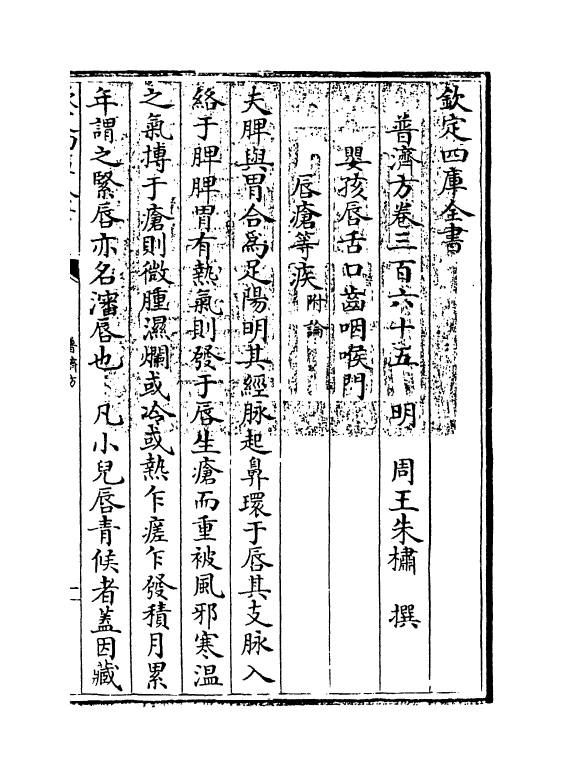 欽定四庫全書
普濟方卷三百六十五 明 周王朱橚 撰
嬰孩唇舌口齒咽喉門
唇瘡等疾附論
夫脾與胃合為足陽明其經脉起鼻環于唇其支脉入
絡于脾脾胃有熱氣則發于唇生瘡而重被風邪寒温
之氣搏于瘡則微腫濕爛或冷或熱乍瘥乍發積月累
年謂之緊唇亦名瀋唇也 凡小兒唇青候者蓋因藏
普濟方
一